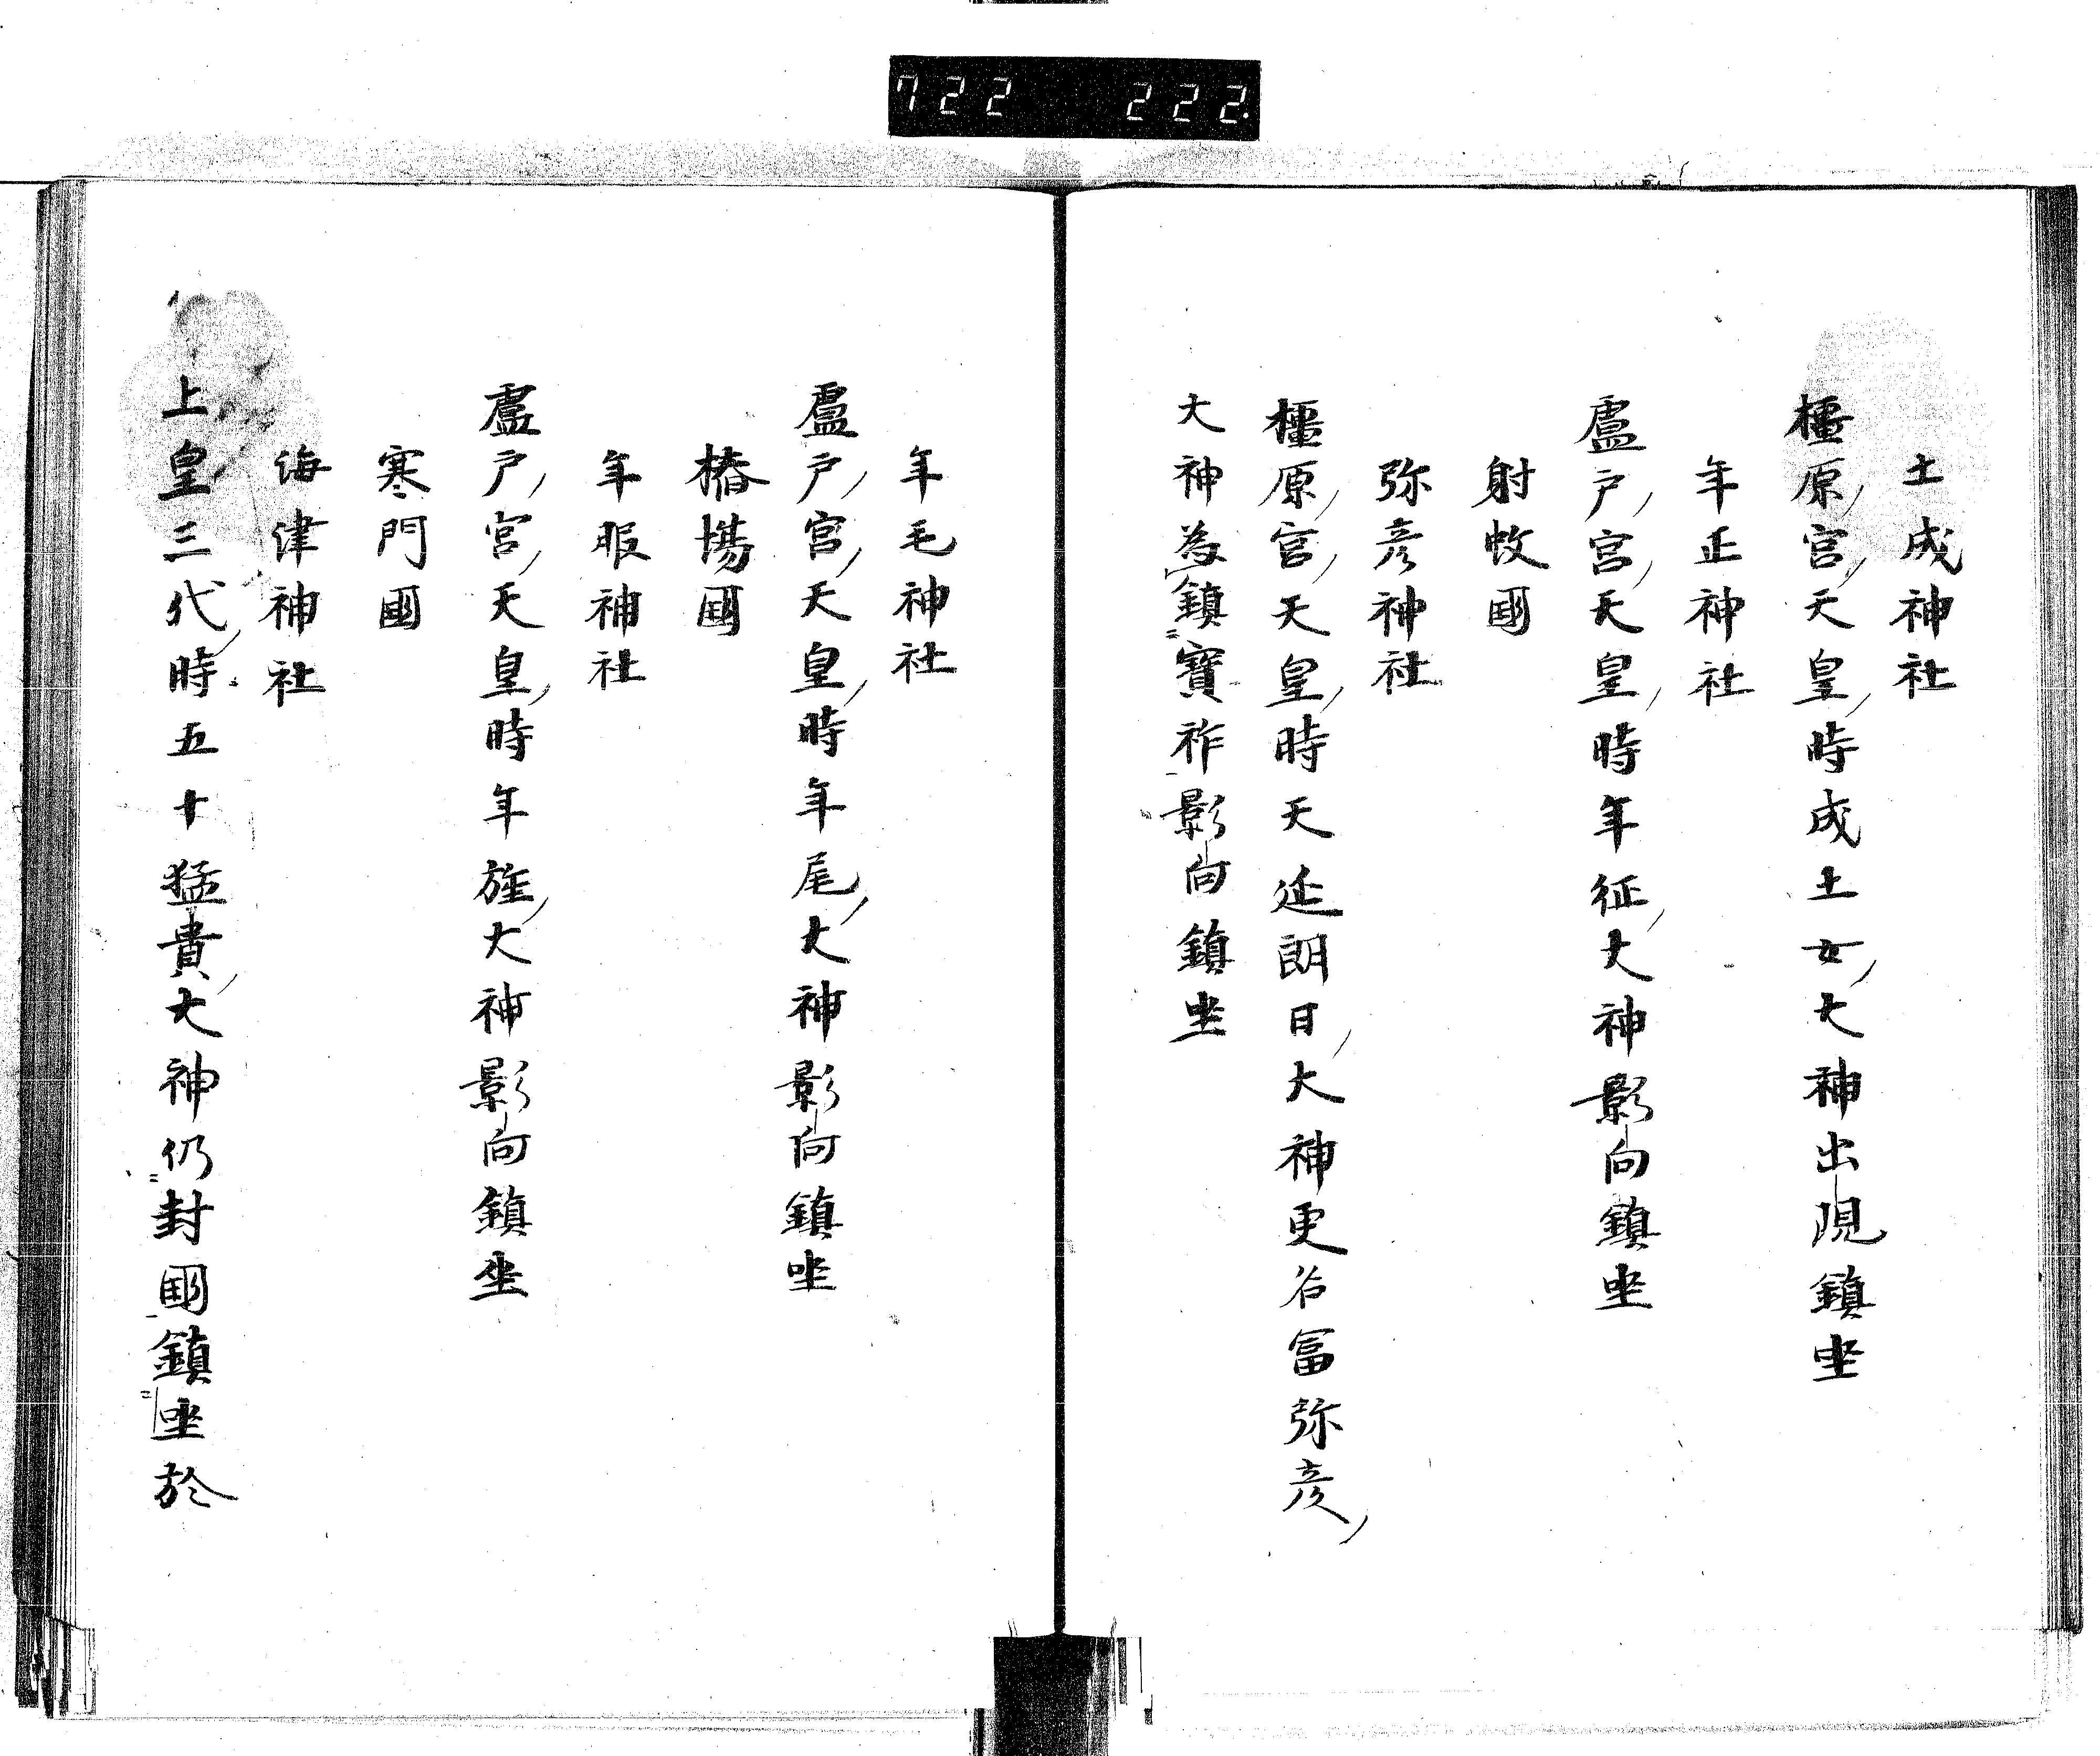 722 222.
土成神社
橿原宮天皇時成土女大神出現鎮坐
年正神社
盧戸宮天皇時年征大神影向鎮坐
射蚊國
弥彦神社
橿原宮天皇時天延朗日大神更名冨弥彦
大神為鎮寶祚影向鎮坐
年毛神社
盧戸宮天皇時年尾大神影向鎮坐
椿場國
年服神社
盧戸宮天皇時年旌大神影向鎮坐
寒門國
海津神社
上皇三代時五十猛貴大神仍封國鎮坐於